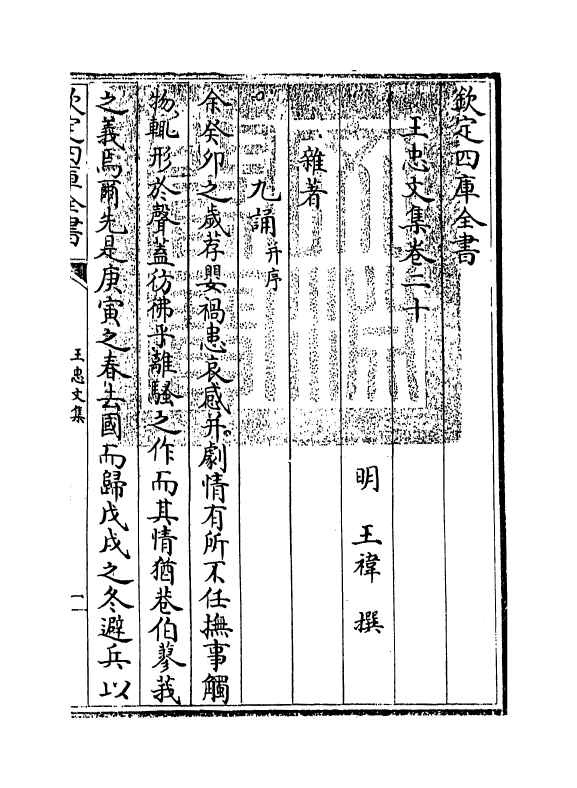 欽定四庫全書
王忠文集卷二十
明 王禕 撰
雜著
九誦并序
余癸卯之歲荐嬰禍患哀感并劇情有所不任撫事觸
物輒形於聲蓋彷彿乎離騷之作而其情猶巷伯蓼莪
之義焉爾先是庚寅之春去國而歸戊戌之冬避兵以
欽定四庫全書
王忠文集
一